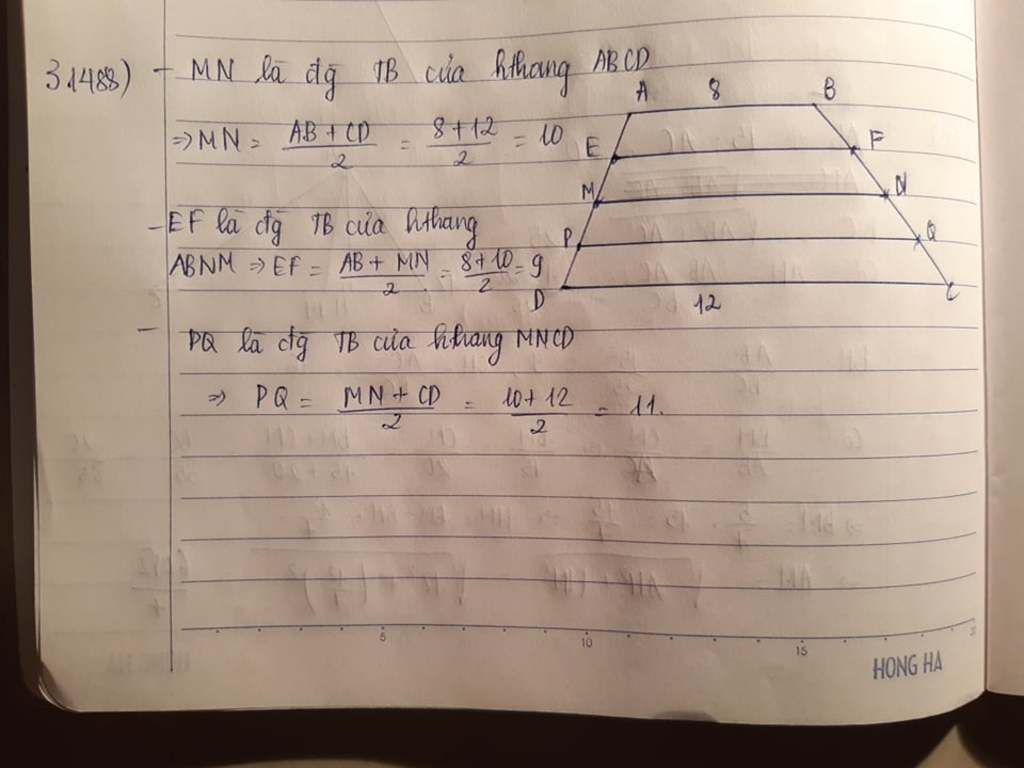 31488) - MN là đg TB của hthang ABCD
⇒ MN = (AB + CD)/2 = (8 + 12)/2 = 10
- EF là đg TB của hthang
ABNM ⇒ EF = (AB + MN)/2 = (8 + 10)/2 = 9
- PQ là đg TB của hthang MNCD
⇒ PQ = (MN + CD)/2 = (10 + 12)/2 = 11.
A 8 B
E F
M N
P Q
D 12 C
5 10 15
HONG HA